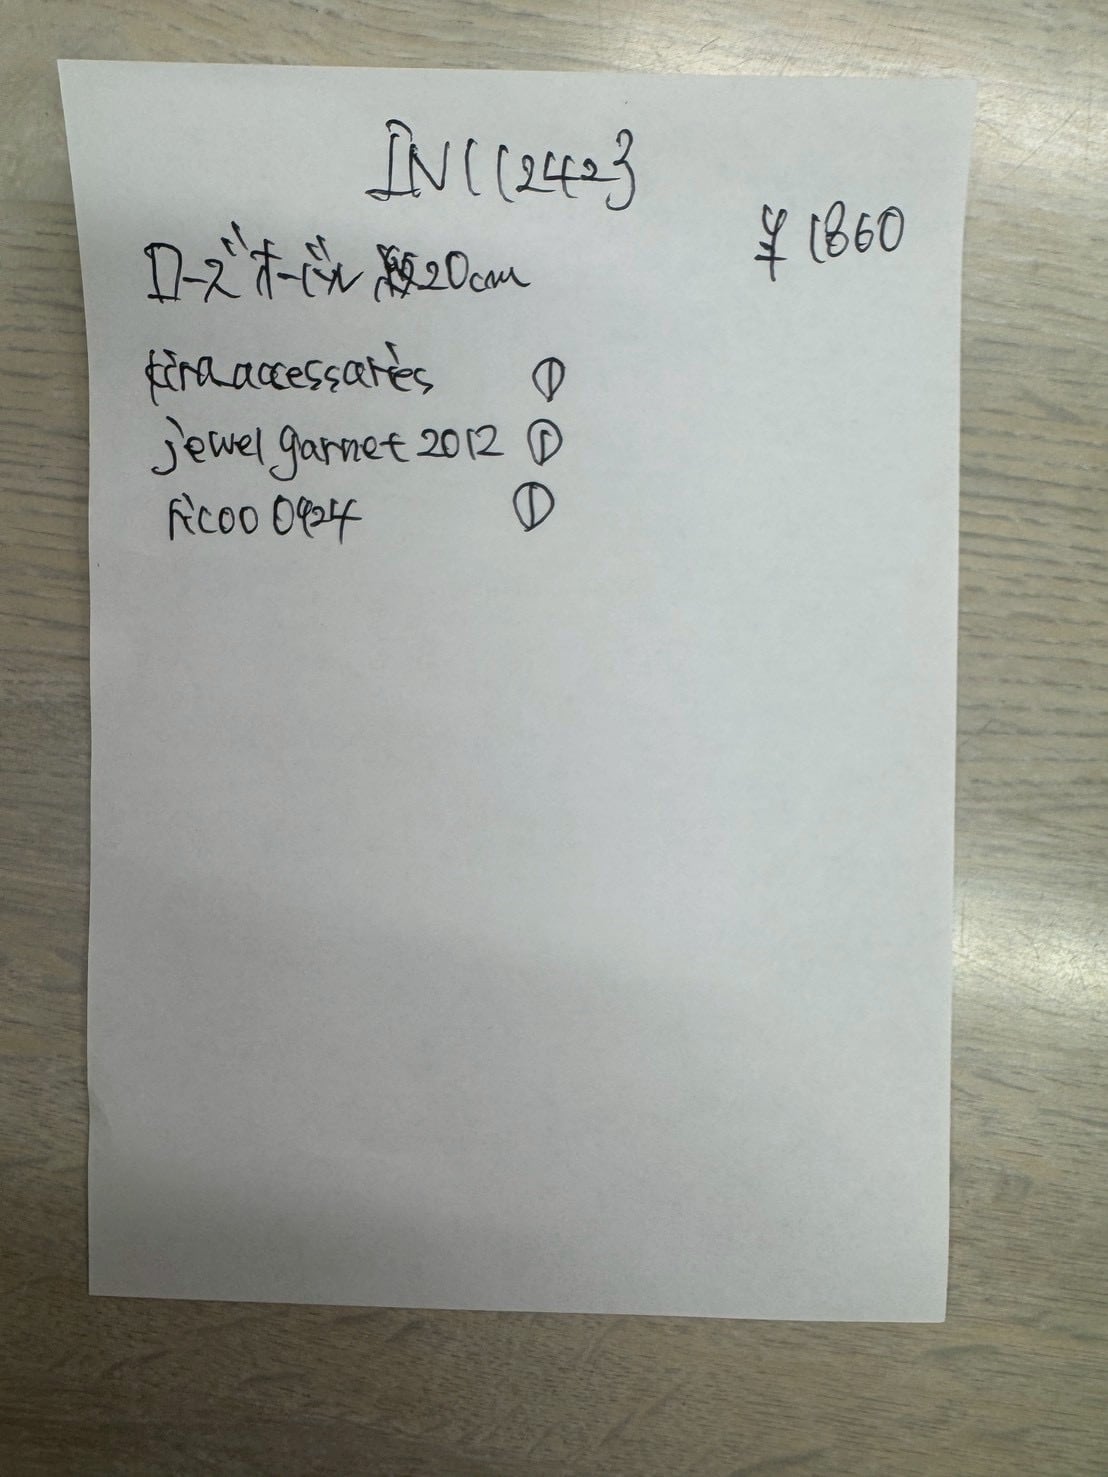 INC(242}
¥1860
ローズオーバル 20cm
kira accessaries ①
jewel garnet 2012 ①
ricoo 0924 ①